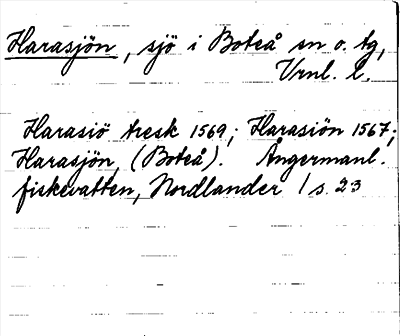 Harasjön, sjö i Boteå sn o. tg,
Vrnl. l.
Harasiö tresk 1569; Harasiön 1567;
Harasjön, (Boteå). Ångermanl.
fiskevatten, Nordlander 1 s. 23